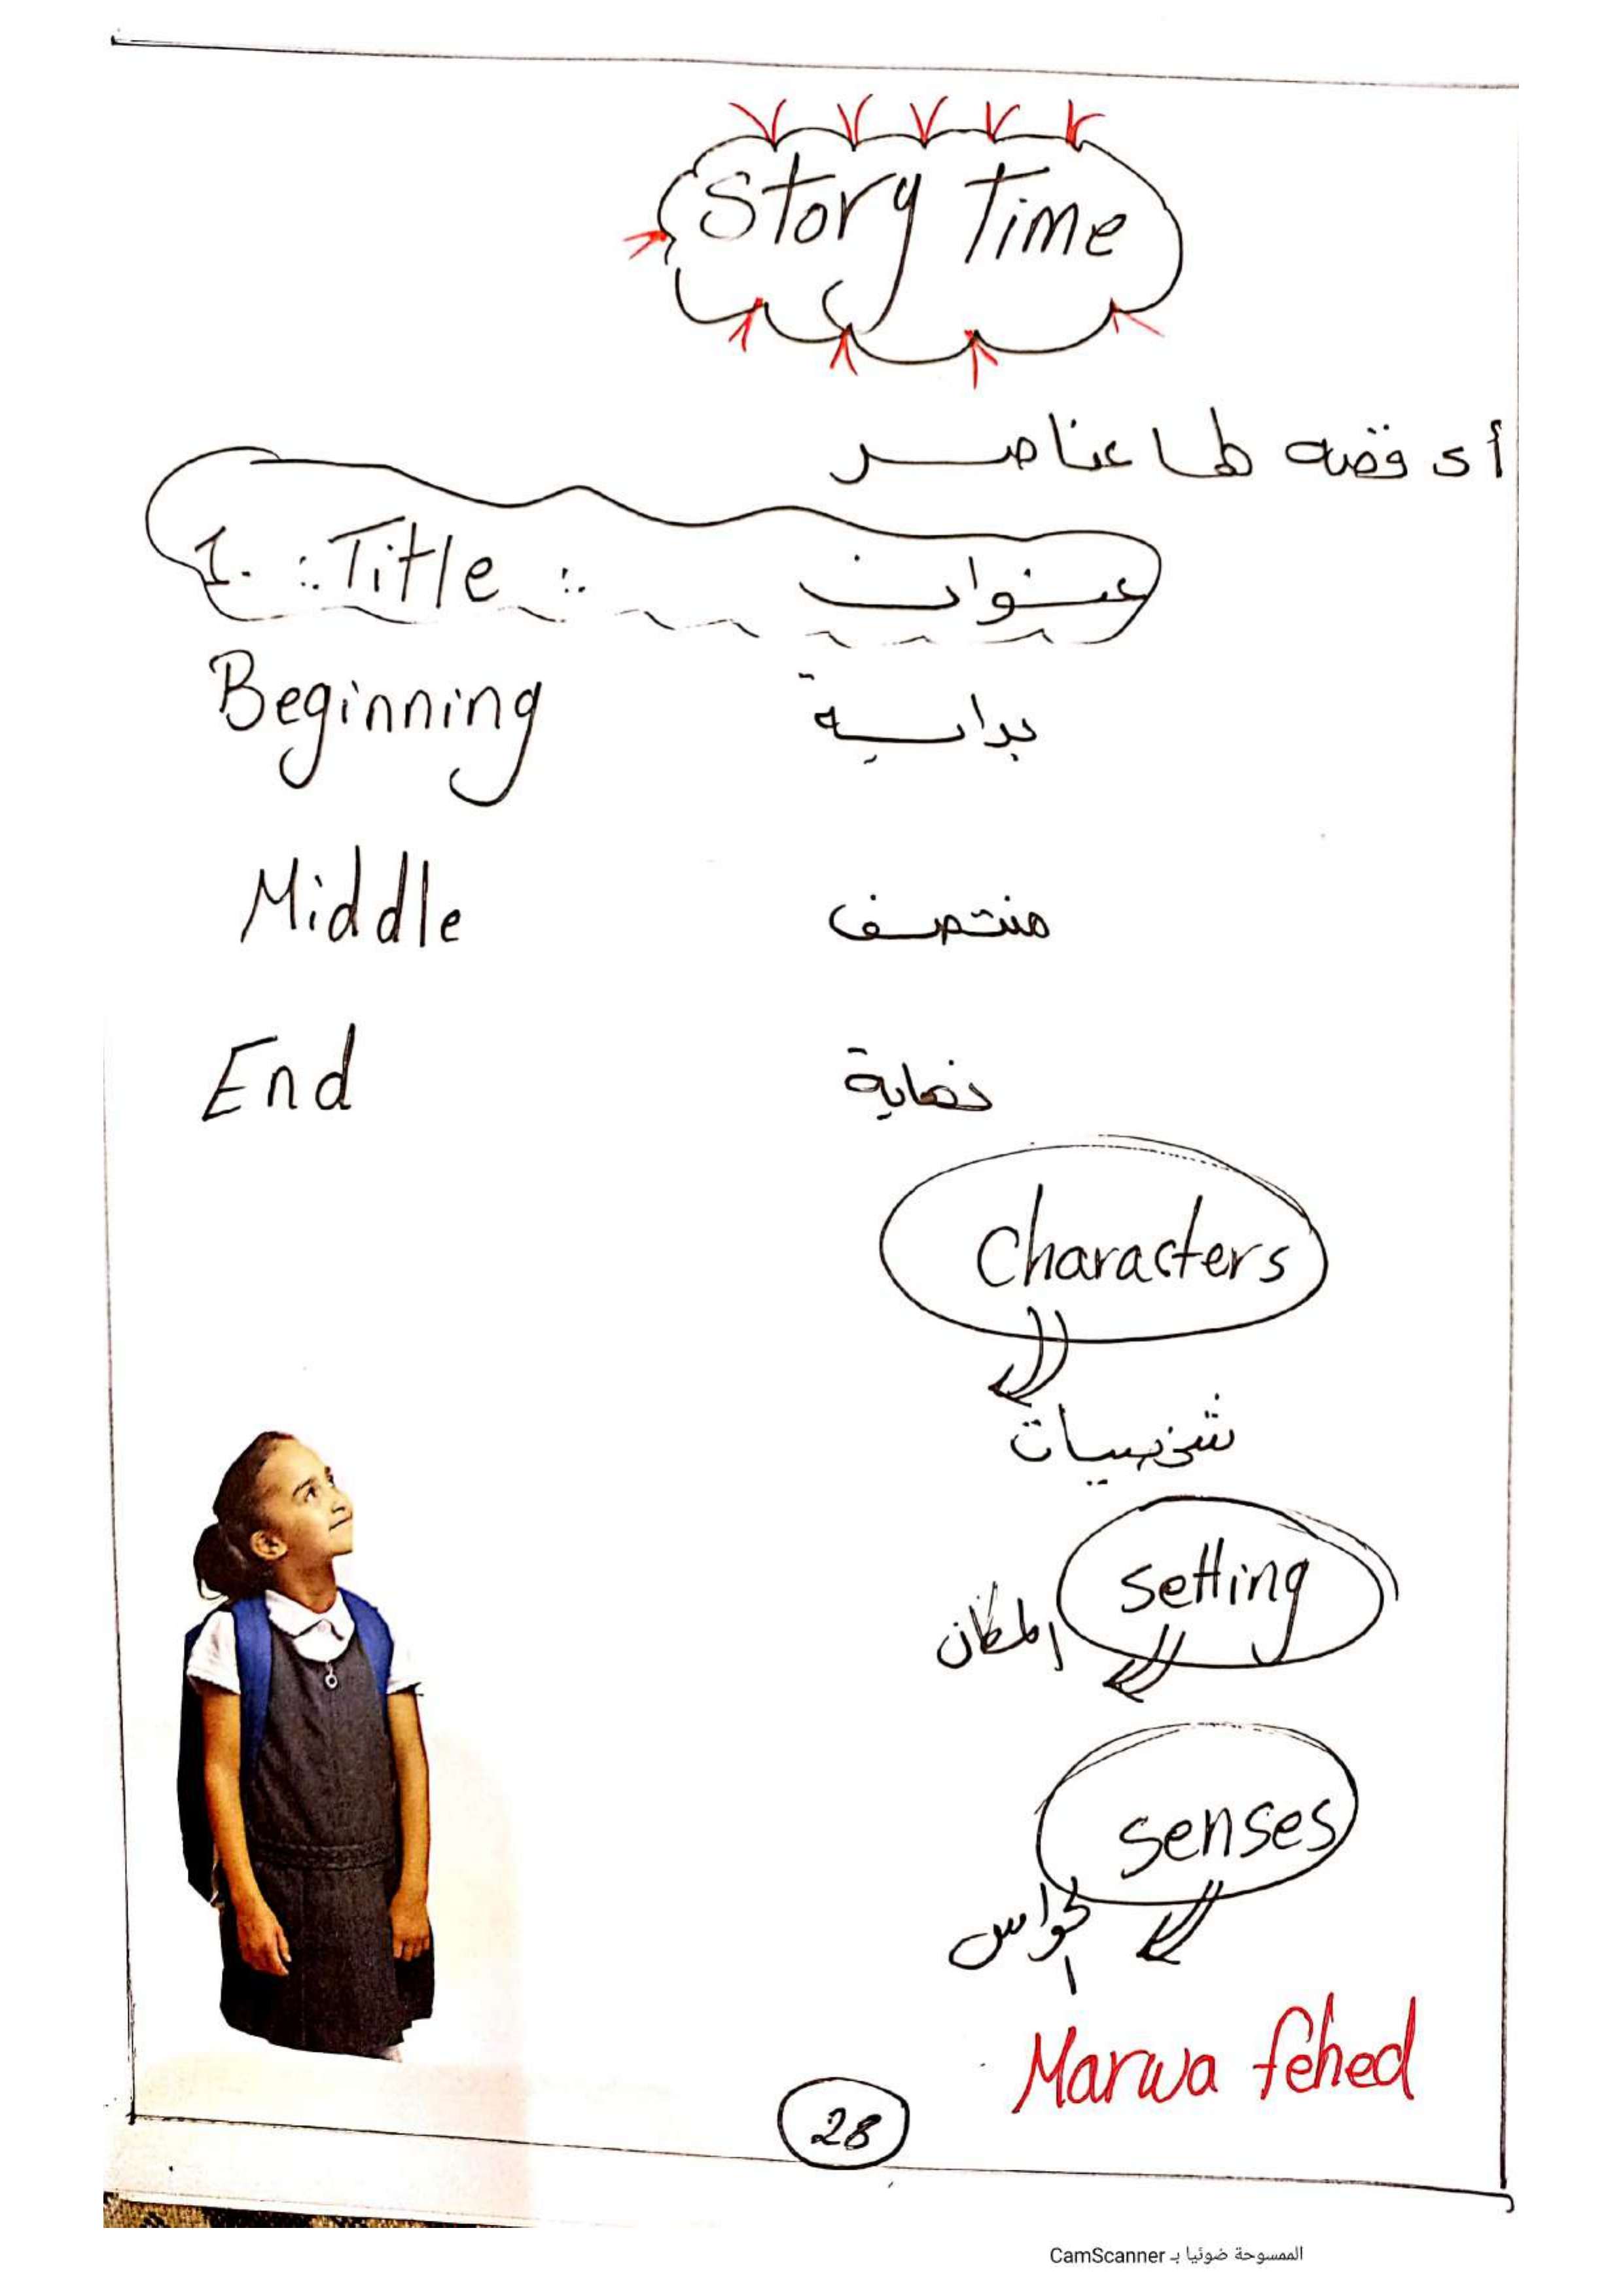 Story Time
أى قصه لها عناصر
1. :. Title :. عنوان
Beginning بداية
Middle منتصف
End نهاية
Characters
شخصيات
setting
المكان
senses
الحواس
Marwa fehed
28
الممسوحة ضوئيا بـ CamScanner